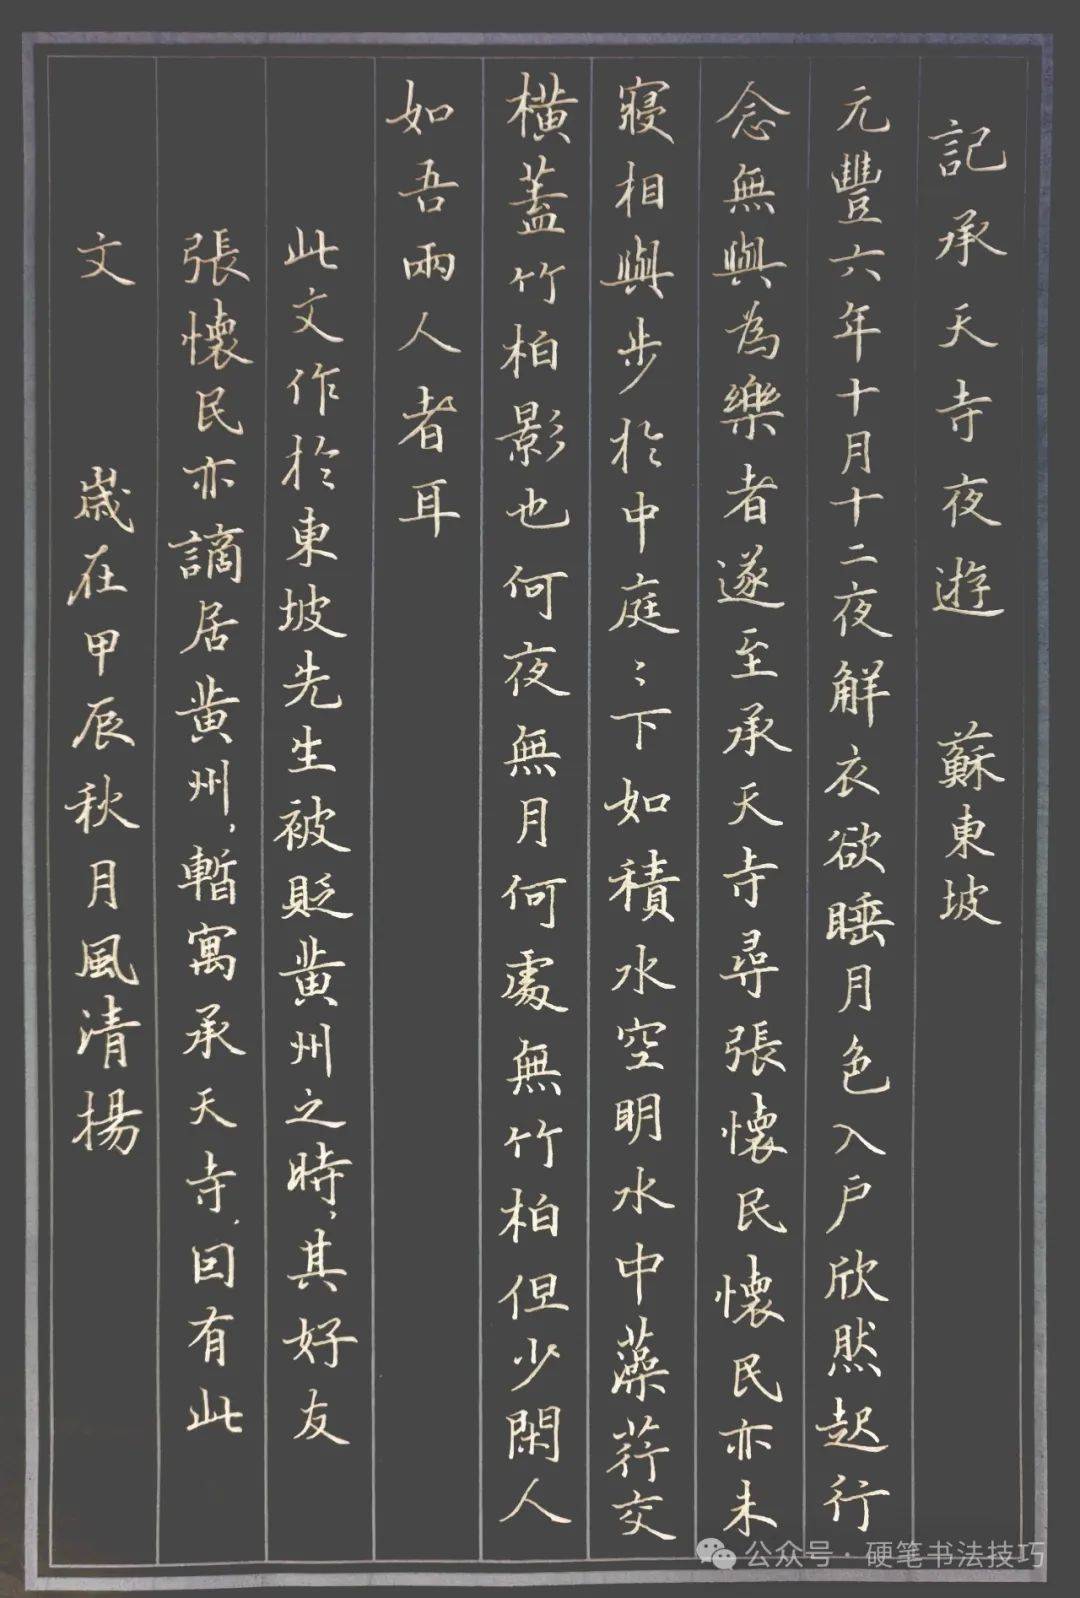 記承天寺夜遊 蘇東坡
元豐六年十月十二夜解衣欲睡月色入戶欣然起行
念無與為樂者遂至承天寺尋張懷民懷民亦未
寢相與步於中庭〻下如積水空明水中藻荇交
橫蓋竹柏影也何夜無月何處無竹柏但少閑人
如吾兩人者耳
此文作於東坡先生被貶黄州之時,其好友
張懷民亦謫居黄州,暫寓承天寺,因有此
文 歲在甲辰秋月風清揚
公众号·硬笔书法技巧